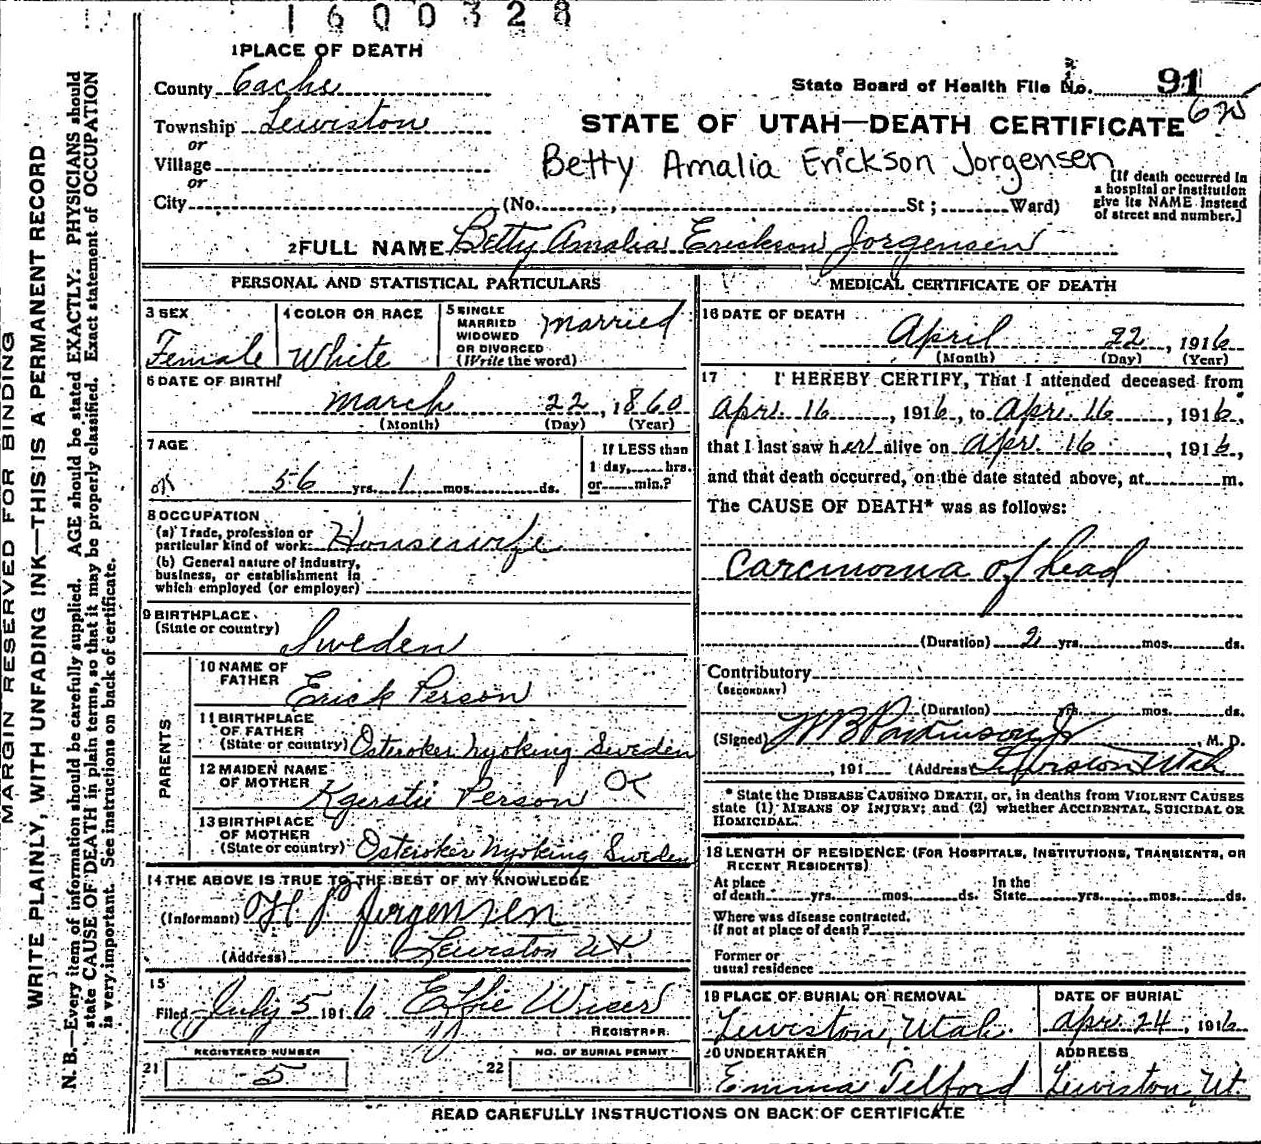 1600328
1 PLACE OF DEATH
County Cache
State Board of Health File No. 91
Township Lewiston
STATE OF UTAH—DEATH CERTIFICATE
or
Village
Betty Amalia Erickson Jorgensen
or
City (No. , St ; Ward)
[If death occurred in
a hospital or institution
give its NAME instead
of street and number.]
2 FULL NAME Betty Amalia Erickson Jorgensen
PERSONAL AND STATISTICAL PARTICULARS
3 SEX
Female
4 COLOR OR RACE
White
5 SINGLE
MARRIED
WIDOWED
OR DIVORCED
(Write the word)
Married
6 DATE OF BIRTH
March 22, 1860
(Month) (Day) (Year)
7 AGE
56 yrs. 1 mos. ds.
If LESS than
1 day, hrs.
or min.?
8 OCCUPATION
(a) Trade, profession or
particular kind of work Housewife
(b) General nature of industry,
business, or establishment in
which employed (or employer)
9 BIRTHPLACE
(State or country)
Sweden
PARENTS
10 NAME OF
FATHER
Erick Person
11 BIRTHPLACE
OF FATHER
(State or country) Osteroker Nyoking Sweden
12 MAIDEN NAME
OF MOTHER
Kgerstie Person OK
13 BIRTHPLACE
OF MOTHER
(State or country) Osteroker Nyoking Sweden
14 THE ABOVE IS TRUE TO THE BEST OF MY KNOWLEDGE
(Informant) Jorgensen
(Address) Lewiston Ut
15
Filed July 5 1916 Effie Wiser
REGISTRAR
REGISTERED NUMBER
21 5
NO. OF BURIAL PERMIT
22
MEDICAL CERTIFICATE OF DEATH
16 DATE OF DEATH
April 22, 1916
(Month) (Day) (Year)
17 I HEREBY CERTIFY, That I attended deceased from
Apr. 16, 1916, to Apr. 16 1916,
that I last saw her alive on Apr. 16, 1916,
and that death occurred, on the date stated above, at m.
The CAUSE OF DEATH* was as follows:
Carcinoma of head
(Duration) 2 yrs. mos. ds.
Contributory
(SECONDARY)
(Duration) yrs. mos. ds.
(Signed) W B Parkinson Jr M. D.
, 191 (Address) Lewiston Utah
* State the DISEASE CAUSING DEATH, or, in deaths from VIOLENT CAUSES
state (1) MEANS OF INJURY; and (2) whether ACCIDENTAL, SUICIDAL OR
HOMICIDAL.
18 LENGTH OF RESIDENCE (FOR HOSPITALS, INSTITUTIONS, TRANSIENTS, OR
RECENT RESIDENTS)
At place
of death yrs. mos. ds.
In the
State yrs. mos. ds.
Where was disease contracted,
if not at place of death?
Former or
usual residence
19 PLACE OF BURIAL OR REMOVAL
Lewiston, Utah.
DATE OF BURIAL
Apr. 24, 1916
20 UNDERTAKER
Emma Telford
ADDRESS
Lewiston, Ut.
READ CAREFULLY INSTRUCTIONS ON BACK OF CERTIFICATE
MARGIN RESERVED FOR BINDING
WRITE PLAINLY, WITH UNFADING INK—THIS IS A PERMANENT RECORD
N. B.—Every item of information should be carefully supplied. AGE should be stated EXACTLY. PHYSICIANS should
state CAUSE OF DEATH in plain terms, so that it may be properly classified. Exact statement of OCCUPATION
is very important. See instructions on back of certificate.